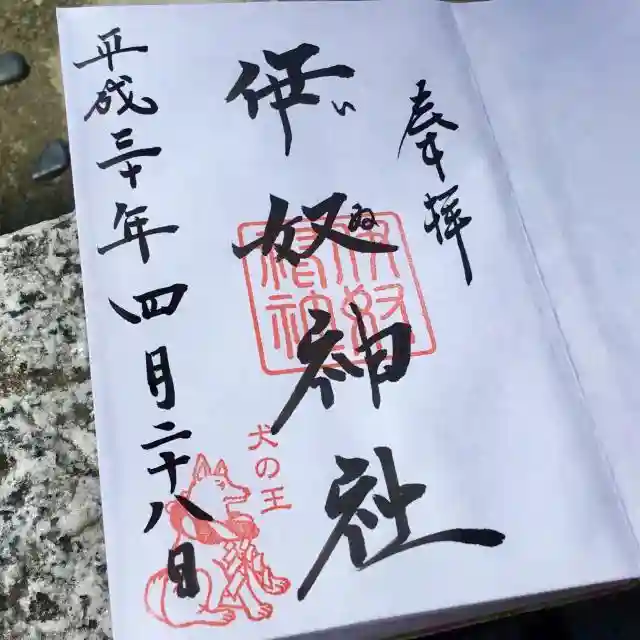 奉拝
伊奴神社
い
ぬ
平成三十年四月二十八日
犬の王